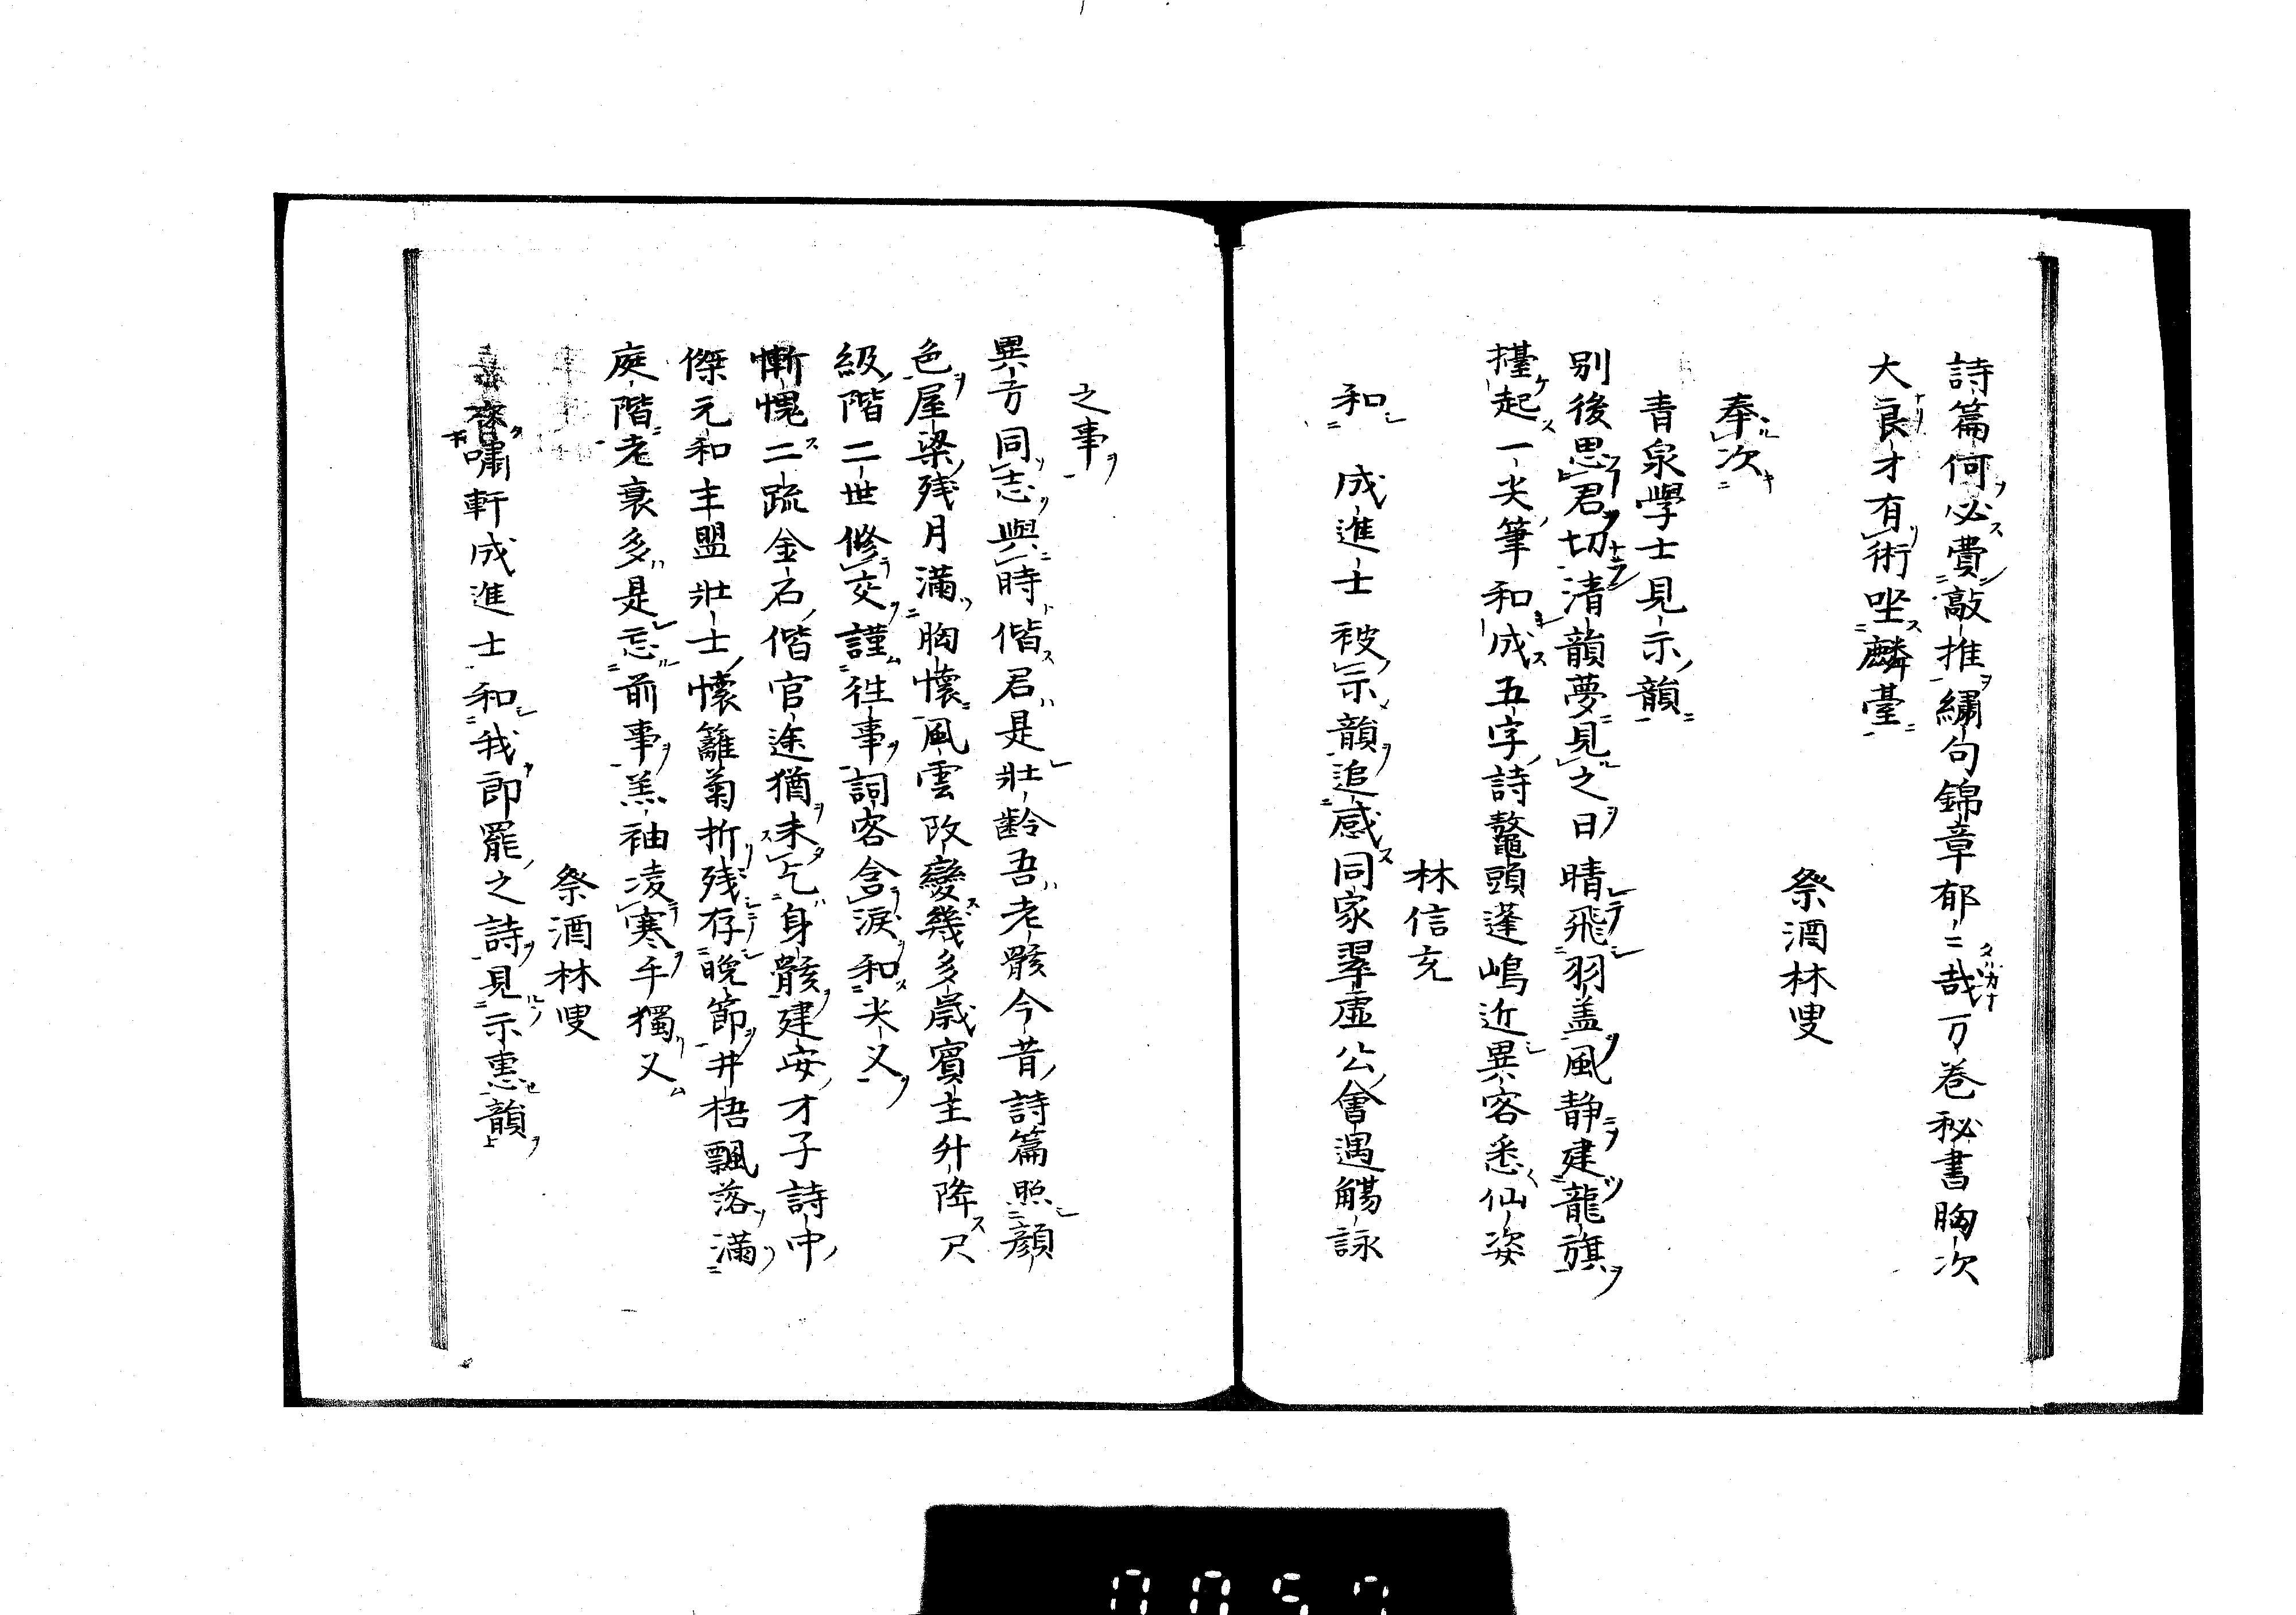 詩篇何必費敲推繡句錦章郁〻哉万巻秘書胸次
大良才有術坐麟臺
祭酒林叟
奉次
青泉學士見示韻
別後思君切清韻夢見之日晴飛羽盖風静建龍旗
擡起一尖筆和成五字詩鼇頭蓬嶋近異客悉仙姿
林信充
和 成進士被示韻追感同家翠虚公會遇觴詠
之事
異方同志與時偕君是壯齢吾老骸今昔詩篇照顔
色屋梁残月滿胸懷風雲改變幾多歳賓主升降尺
級階二世修交謹往事詞客含淚和尖义
慚愧二疏金石偕官途猶未乞身骸建安才子詩中
傑元和主盟壯士懷籬菊折残存晩節井梧飄落滿
庭階老衰多是忘前事羔袖凌寒手獨义
祭酒林叟
嘯軒成進士和我即罷之詩見示恵韻